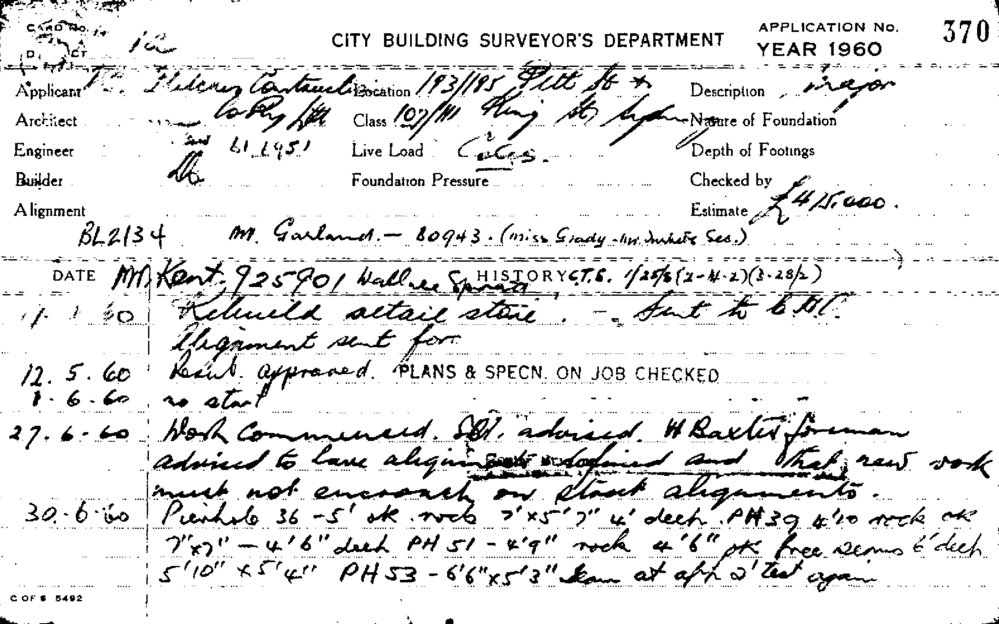 CARD No.
CITY BUILDING SURVEYOR'S DEPARTMENT
APPLICATION No. 370
YEAR 1960
Applicant Construction Location 193/195 Pitt St & Description major
Architect Co Pty Ltd Class 107/111 King St Sydney Nature of Foundation
Engineer L1 1951 Live Load Coles. Depth of Footings
Builder Do Foundation Pressure Checked by
Alignment Estimate £415,000.
BL2134 Mr. Garland. - 80943. (Miss Grady Sec.)
DATE Mr. Kent, 925901 Wallace HISTORY C.T.S. 1/28/6 (2-4-2) (3-28/2)
60 Rebuild retail store. - Sent to
Alignment sent for
12.5.60 Resub. approved. PLANS & SPECN. ON JOB CHECKED
1.6.60 no start
27.6.60 Work Commenced. advised. H Baxter foreman
advised to have alignments defined and that new work
must not encroach on street alignments.
30.6.60 Pierhole 36 - 5' ok rock 7'x5'7" 4' deep. PH 39 4'10 rock ok
7"x7" - 4'6" deep PH 51 - 4'9" rock 4'6" ok free seams 6' deep
5'10" x 5'4" PH 53 - 6'6" x 5'3" seam at 2' test again
C OF S 5492